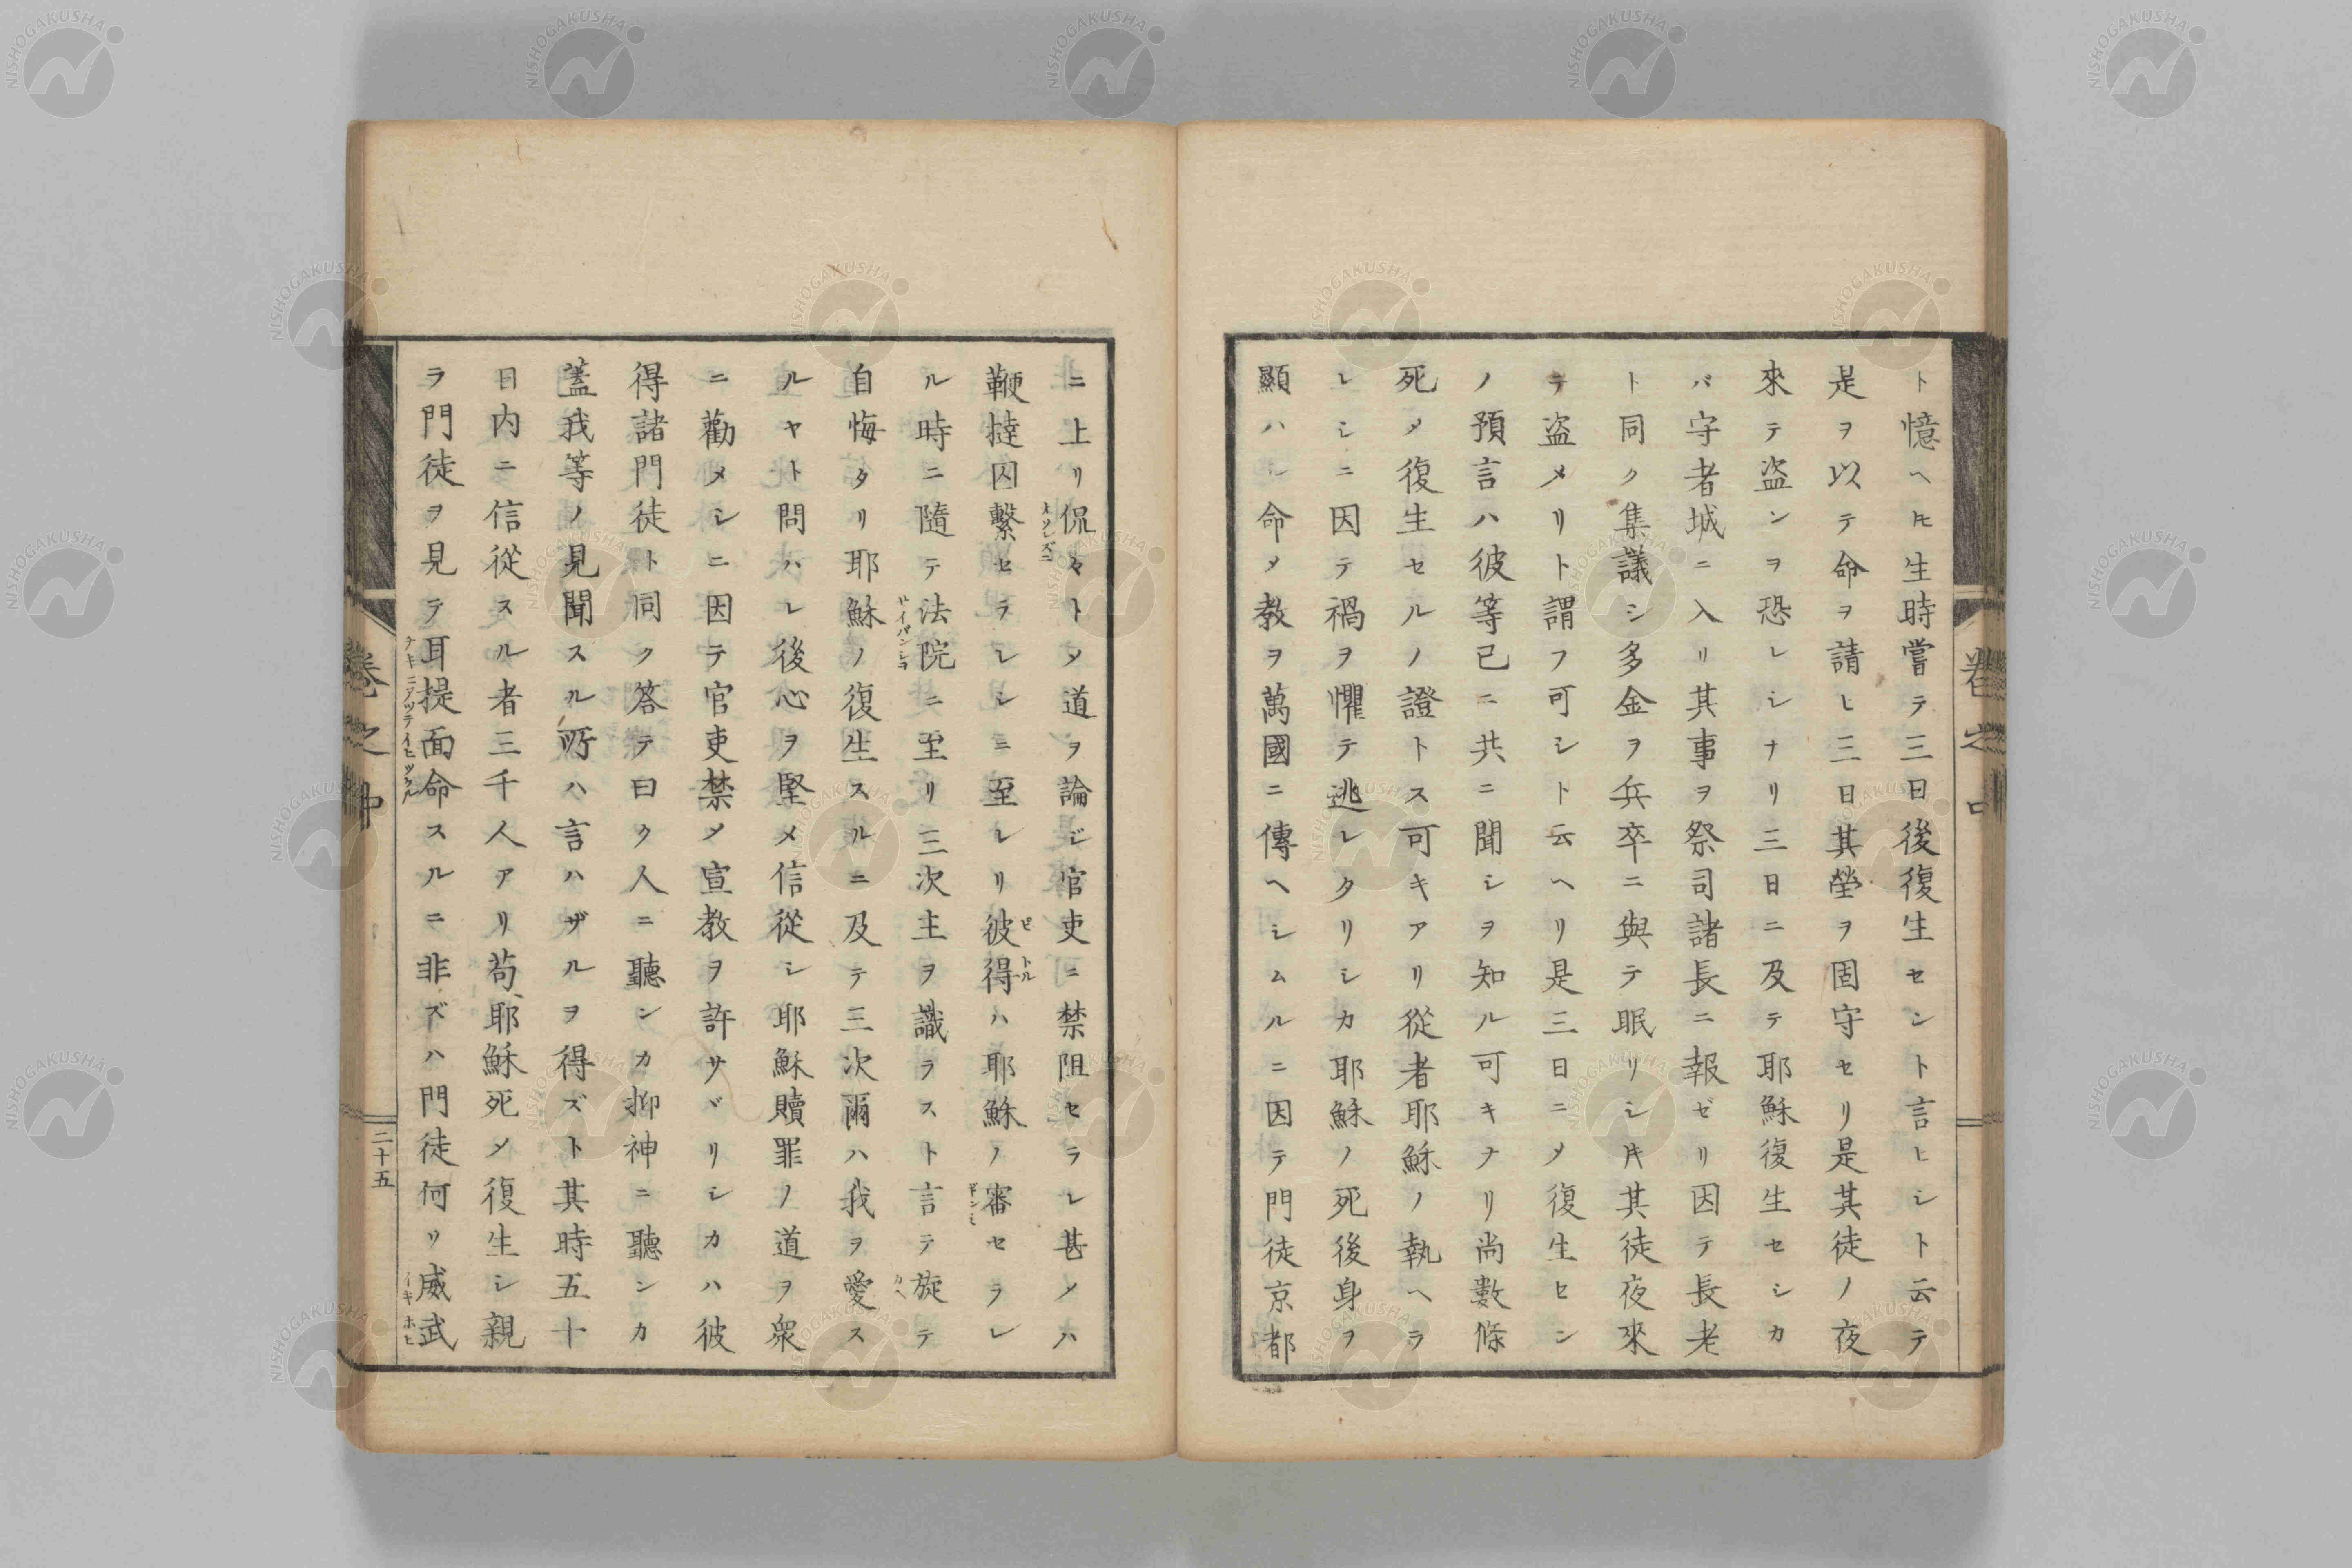 ト憶ヘ𪜈生時嘗テ三日後復生セント言ヒシト云テ
是ヲ以テ命ヲ請ヒ三日其塋ヲ固守セリ是其徒ノ夜
來テ盗ンヲ恐レシナリ三日ニ及テ耶穌復生セシカ
バ守者城ニ入リ其事ヲ祭司諸長ニ報ゼリ因テ長老
ト同ク集議シ多金ヲ兵卒ニ與テ眠リシ𪜈其徒夜來
テ盗メリト謂フ可シト云ヘリ是三日ニメ復生セシ
ノ預言ハ彼等已ニ共ニ聞シヲ知ル可キナリ尚數條
死メ復生セルノ證トス可キアリ從者耶穌ノ執ヘラ
レシニ因テ禍ヲ懼テ逃レタリシカ耶穌ノ死後身ヲ
顯ハシ命メ教ヲ萬國ニ傳ヘシムルニ因テ門徒京都
ニ上リ侃々トメ道ヲ論ジ官吏ニ禁阻セラレ甚メハ
オソレズニ
鞭撻囚繋セラレシニ至レリ彼得ハ耶穌ノ審セラレ
ピトル
ギンミ
ル時ニ隨テ法院ニ至リ三次主ヲ識ラスト言テ旋テ
カヘ
自悔タリ耶穌ノ復生スルニ及テ三次爾ハ我ヲ愛ス
ルヤト問ハレ後心ヲ堅メ信從シ耶穌贖罪ノ道ヲ衆
ニ勸メシニ因テ官吏禁メ宣教ヲ許サヾリシカハ彼
得諸門徒ト同ク答テ曰ク人ニ聽ンカ抑神ニ聽ンカ
蓋我等ノ見聞スル所ハ言ハザルヲ得ズト其時五十
日内ニ信從スル者三千人アリ苟耶穌死メ復生シ親
ヲ門徒ヲ見テ耳提面命スルニ非ズハ門徒何リ威武
イキホヒ
卷之中
二十五
NISHOGAKUSHA